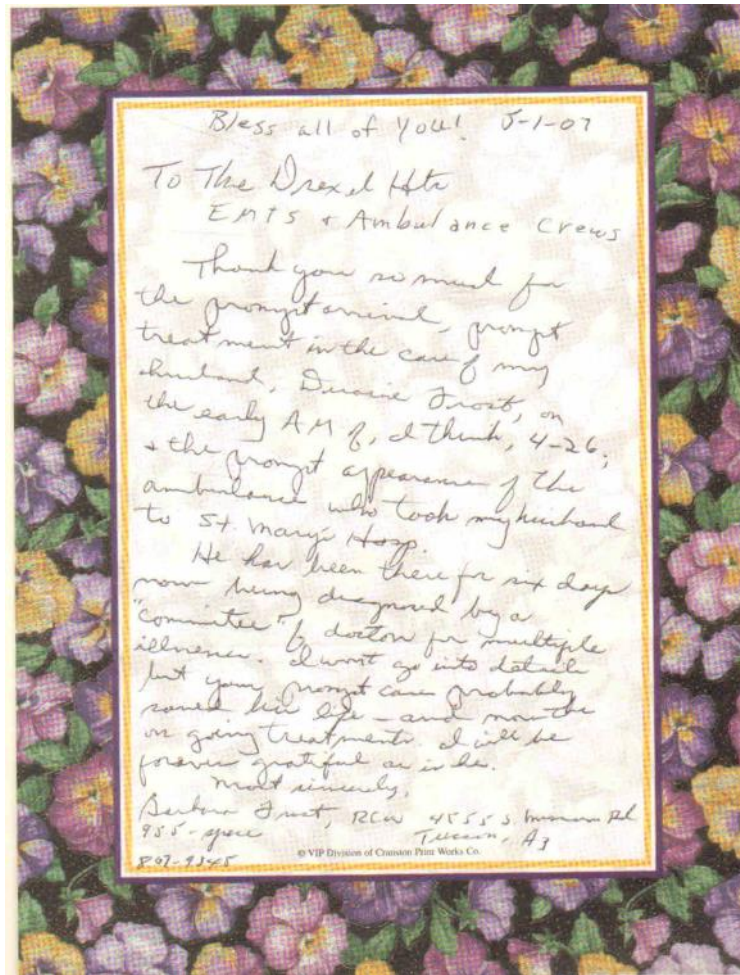 Bless all of You! 5-1-07
To The Drexel Hts
EMTS + Ambulance Crews
Thank you so much for
the prompt arrival, prompt
treatment in the care of my
husband, Duaine Frost, on
the early AM of, I think, 4-26;
+ the prompt appearance of the
ambulance who took my husband
to St. Mary's Hosp.
He has been there for six days
now being diagnosed by a
"committee" of doctors for multiple
illnesses. I wont go into details
but your prompt care probably
saved his life - and now the
on going treatments. I will be
forever grateful as is he.
Most sincerely,
Barbara Frost, 4555 S. Mission Rd
Tucson, Az
© VIP Division of Cranston Print Works Co.
807-9345